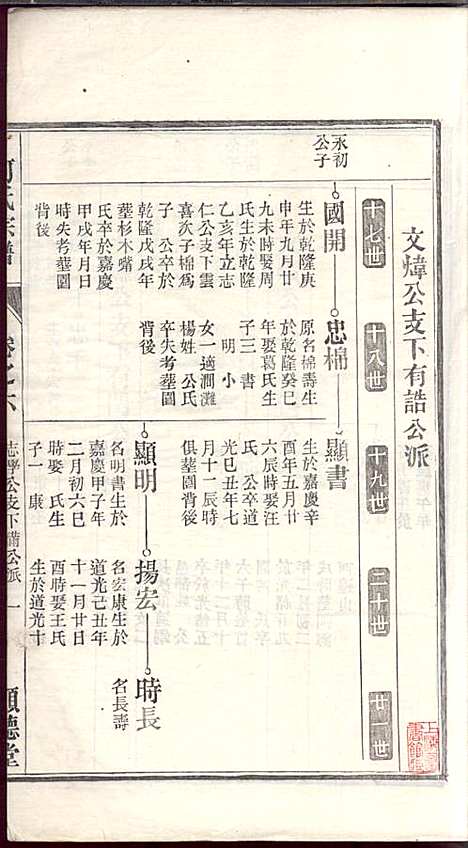 文煒公支下有誥公派
十七世
十八世
十九世
二十世
廿一世
永初
公子
國開
生於乾隆庚
申年九月廿
九未時娶周
氏生於乾隆
乙亥年立志
仁公支下雲
喜次子棉為
子 公卒於
乾隆戊戌年
塟杉木嘴
氏卒於嘉慶
甲戌年月日
時失考塟園
背後
忠棉
原名棉壽生
於乾隆癸巳
年娶葛氏生
子三 書
明 小
女一適澗灘
楊姓 公氏
卒失考塟園
背後
顯書
生於嘉慶辛
酉年五月廿
六辰時娶汪
氏 公卒道
光己丑年七
月十一辰時
俱塟園背後
顯明
名明書生於
嘉慶甲子年
二月初六巳
時娶 氏生
子一 康
揚宏
名宏康生於
道光己丑年
十一月廿日
酉時娶王氏
生於道光十
時長
名長壽
宗譜
卷之六
公支下備公派 一
德堂